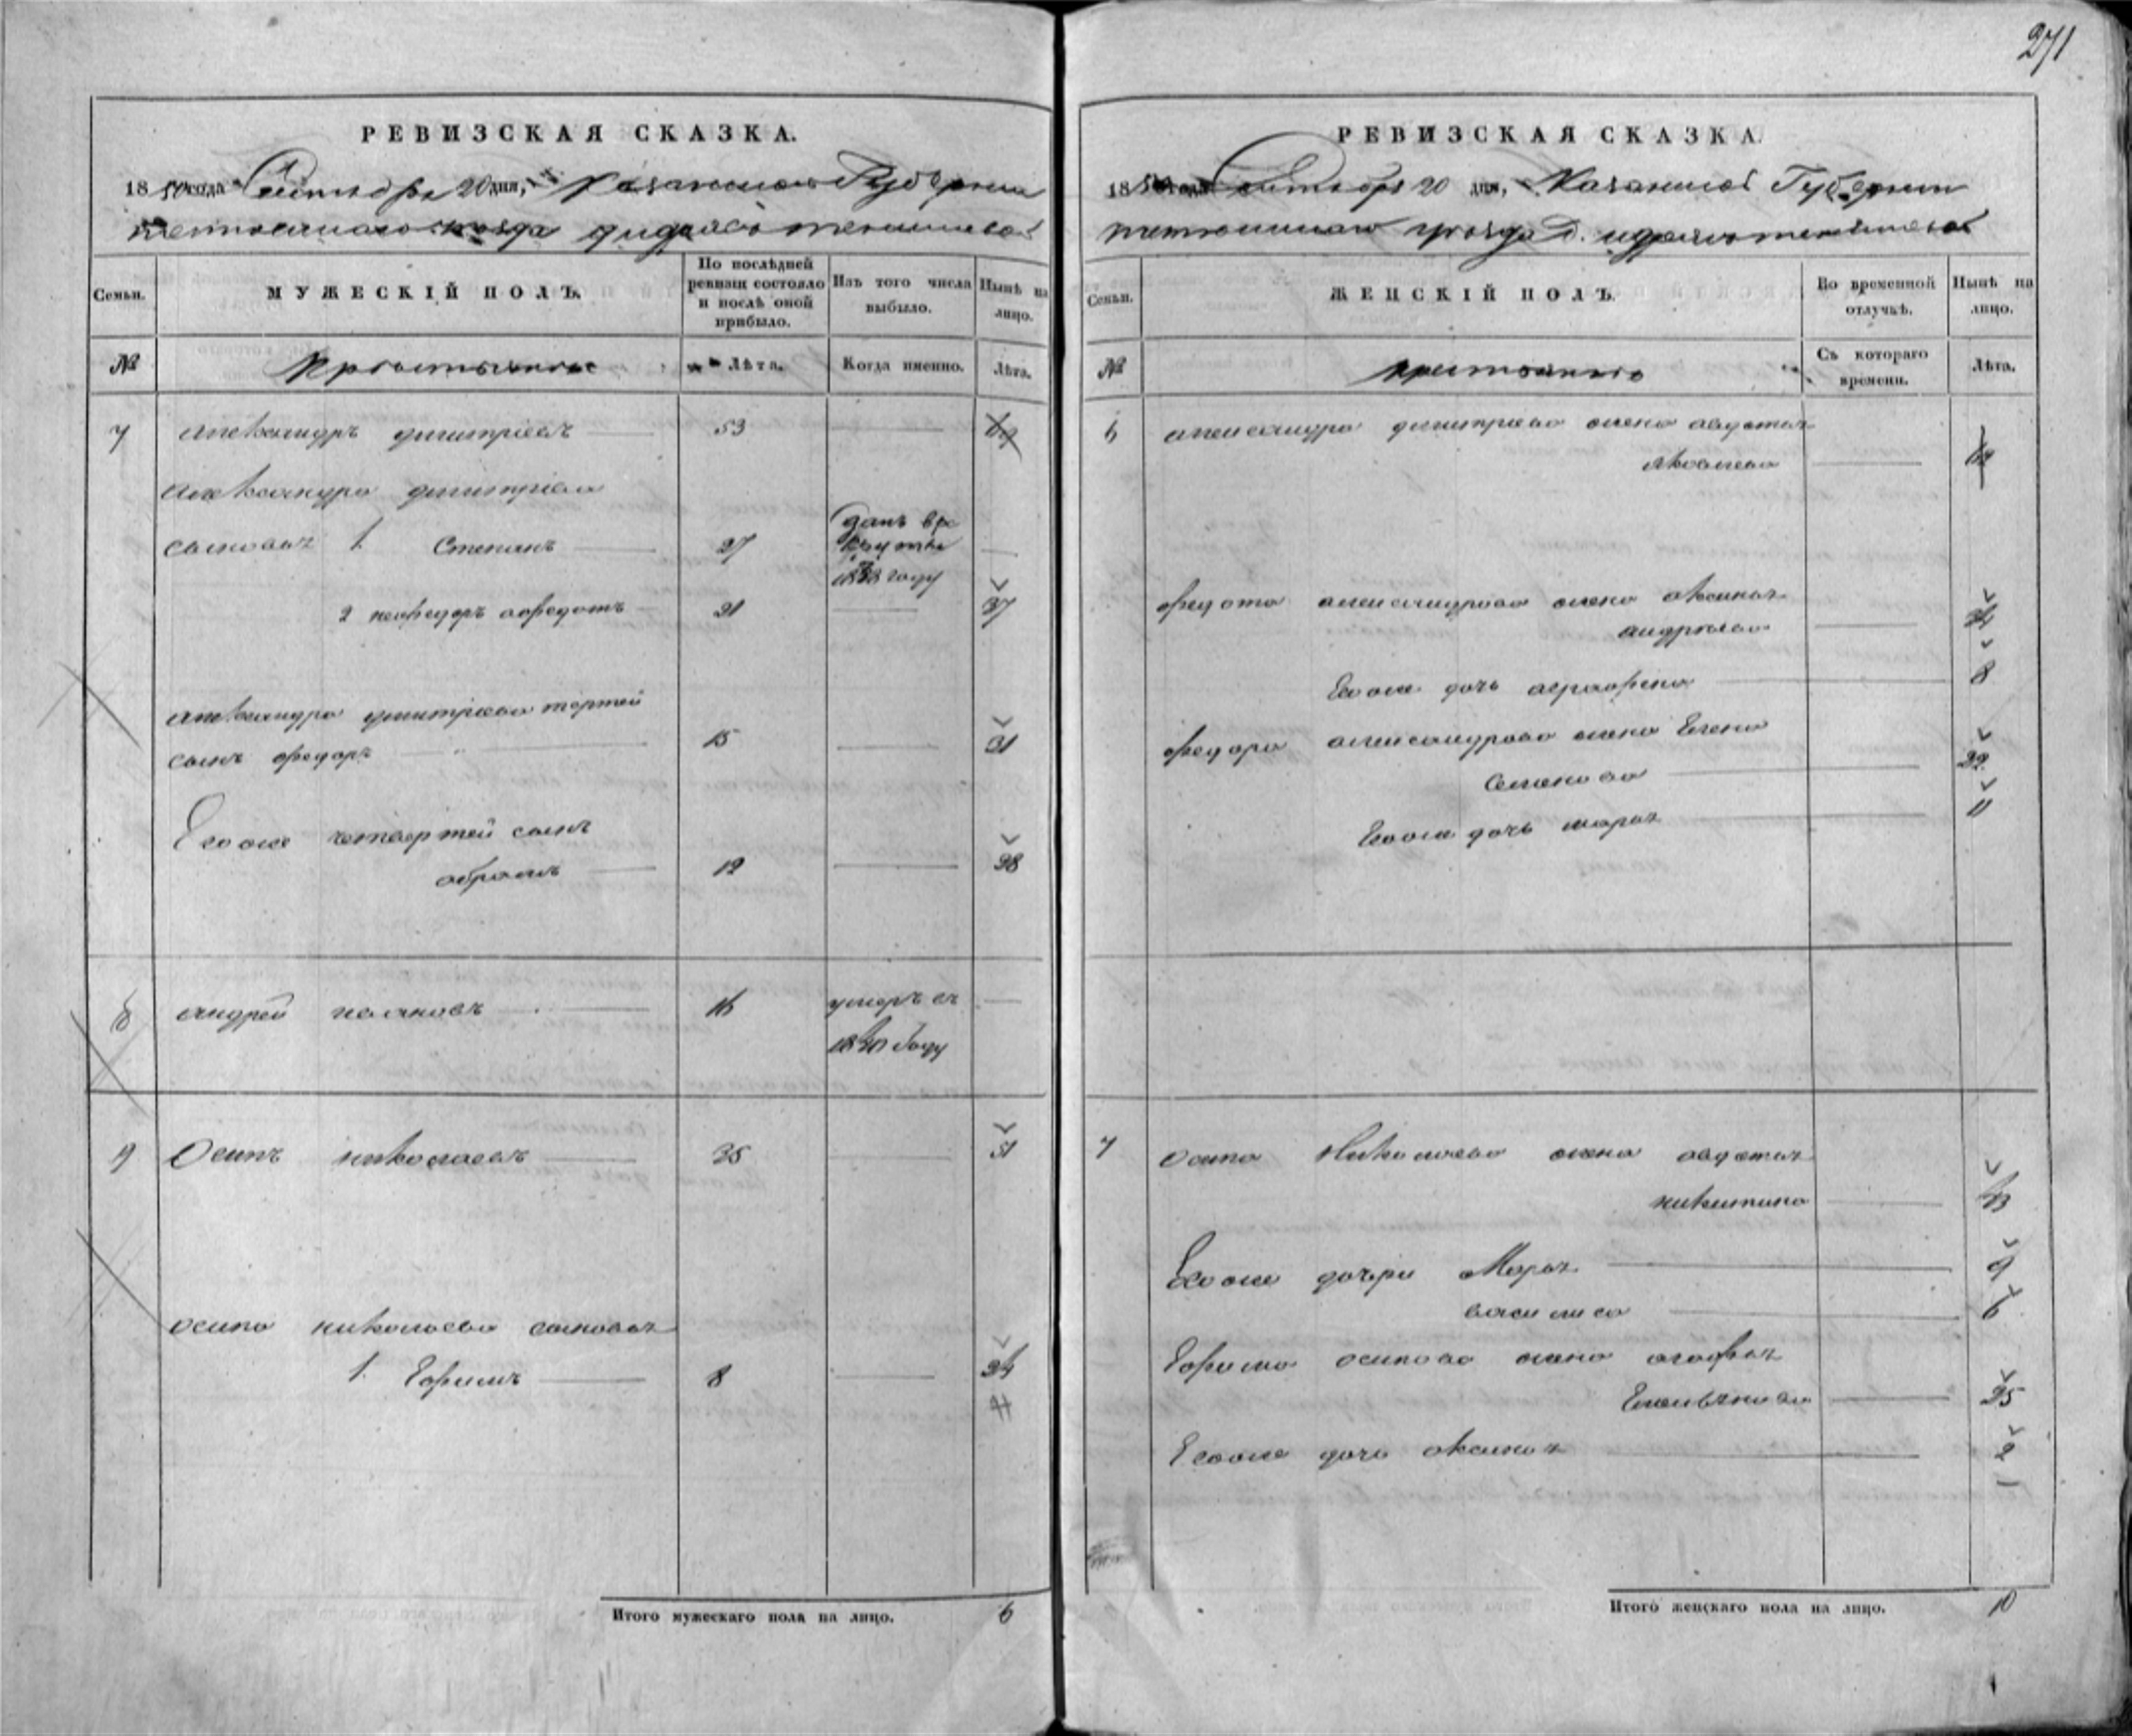 271
РЕВИЗСКАЯ СКАЗКА.
1850 года Сентября 20 дня, Казанской Губернии
тетюшскаго уезда
Семьи.
МУЖЕСКІЙ ПОЛЪ.
По послѣдней ревизіи состояло и послѣ оной прибыло.
Изъ того числа выбыло.
Нынѣ на лицо.
№
Лѣта.
Когда именно.
Лѣта.
7 александръ дмитріевъ 53 69
александра дмитріева
сыновья 1. Степанъ 27
году
2 21 37
александра дмитріева третей
сынъ федоръ 15 31
Егоже четвертей сынъ
абрамъ 12 28
8 андрей 16 умеръ въ
году
9 Осипъ николаевъ 35 51
осипа николаева сыновья
1. Ефимъ 8 24
Итого мужескаго пола на лицо. 6
РЕВИЗСКАЯ СКАЗКА.
1850 года Сентября 20 дня, Казанской Губернии
тетюшскаго уезда д.
Семьи.
ЖЕНСКІЙ ПОЛЪ.
Во временной отлучкѣ.
Нынѣ на лицо.
№
Съ котораго времени.
Лѣта.
6 александра дмитриева жена авдотья
яковлева
федота александрова жена аксинья
андреева
Егоже дочь аграфена 8
федора александрова жена Елена
семенова
Егоже дочь марья 11
7 осипа Николаева жена авдотья
никитина 43
Егоже дочери Марья 9
василиса 6
Ефима осипова жена агафья
25
Егоже дочь аксинья 2
Итого женскаго пола на лицо. 10